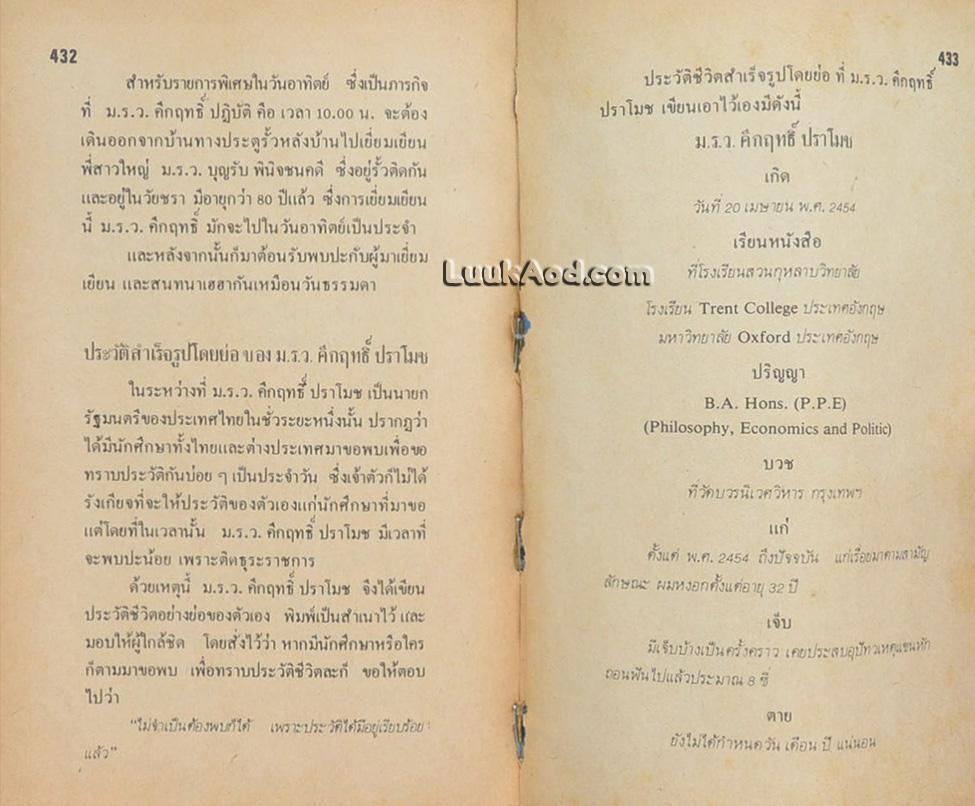 432
สำหรับรายการพิเศษในวันอาทิตย์ ซึ่งเป็นภารกิจ
ที่ ม.ร.ว. คึกฤทธิ์ ปฏิบัติ คือ เวลา 10.00 น. จะต้อง
เดินออกจากบ้านทางประตูรั้วหลังบ้านไปเยี่ยมเยียน
พี่สาวใหญ่ ม.ร.ว. บุญรับ พินิจชนคดี ซึ่งอยู่รั้วติดกัน
และอยู่ในวัยชรา มีอายุกว่า 80 ปีแล้ว ซึ่งการเยี่ยมเยียน
นี้ ม.ร.ว. คึกฤทธิ์ มักจะไปในวันอาทิตย์เป็นประจำ
และหลังจากนั้นก็มาต้อนรับพบปะกับผู้มาเยี่ยม
เยียน และสนทนาเฮฮากันเหมือนวันธรรมดา
ประวัติสำเร็จรูปโดยย่อ ของ ม.ร.ว. คึกฤทธิ์ ปราโมช
ในระหว่างที่ ม.ร.ว. คึกฤทธิ์ ปราโมช เป็นนายก
รัฐมนตรีของประเทศไทยในชั่วระยะหนึ่งนั้น ปรากฏว่า
ได้มีนักศึกษาทั้งไทยและต่างประเทศมาขอพบเพื่อขอ
ทราบประวัติกันบ่อย ๆ เป็นประจำวัน ซึ่งเจ้าตัวก็ไม่ได้
รังเกียจที่จะให้ประวัติของตัวเองแก่นักศึกษาที่มาขอ
แต่โดยที่ในเวลานั้น ม.ร.ว. คึกฤทธิ์ ปราโมช มีเวลาที่
จะพบปะน้อย เพราะติดธุระราชการ
ด้วยเหตุนี้ ม.ร.ว. คึกฤทธิ์ ปราโมช จึงได้เขียน
ประวัติชีวิตอย่างย่อของตัวเอง พิมพ์เป็นสำเนาไว้ และ
มอบให้ผู้ใกล้ชิด โดยสั่งไว้ว่า หากมีนักศึกษาหรือใคร
ก็ตามมาขอพบ เพื่อทราบประวัติชีวิตละก็ ขอให้ตอบ
ไปว่า
"ไม่จำเป็นต้องพบก็ได้ เพราะประวัติได้มีอยู่เรียบร้อย
แล้ว"
433
ประวัติชีวิตสำเร็จรูปโดยย่อ ที่ ม.ร.ว. คึกฤทธิ์
ปราโมช เขียนเอาไว้เองมีดังนี้
ม.ร.ว. คึกฤทธิ์ ปราโมช
เกิด
วันที่ 20 เมษายน พ.ศ. 2454
เรียนหนังสือ
ที่โรงเรียนสวนกุหลาบวิทยาลัย
โรงเรียน Trent College ประเทศอังกฤษ
มหาวิทยาลัย Oxford ประเทศอังกฤษ
ปริญญา
B.A. Hons. (P.P.E)
(Philosophy, Economics and Politic)
บวช
ที่วัดบวรนิเวศวิหาร กรุงเทพฯ
แก่
ตั้งแต่ พ.ศ. 2454 ถึงปัจจุบัน แก่เรื่อยมาตามสามัญ
ลักษณะ ผมหงอกตั้งแต่อายุ 32 ปี
เจ็บ
มีเจ็บบ้างเป็นครั้งคราว เคยประสบอุปัทวเหตุแขนหัก
ถอนฟันไปแล้วประมาณ 8 ซี่
ตาย
ยังไม่ได้กำหนดวัน เดือน ปี แน่นอน
LuukAod.com